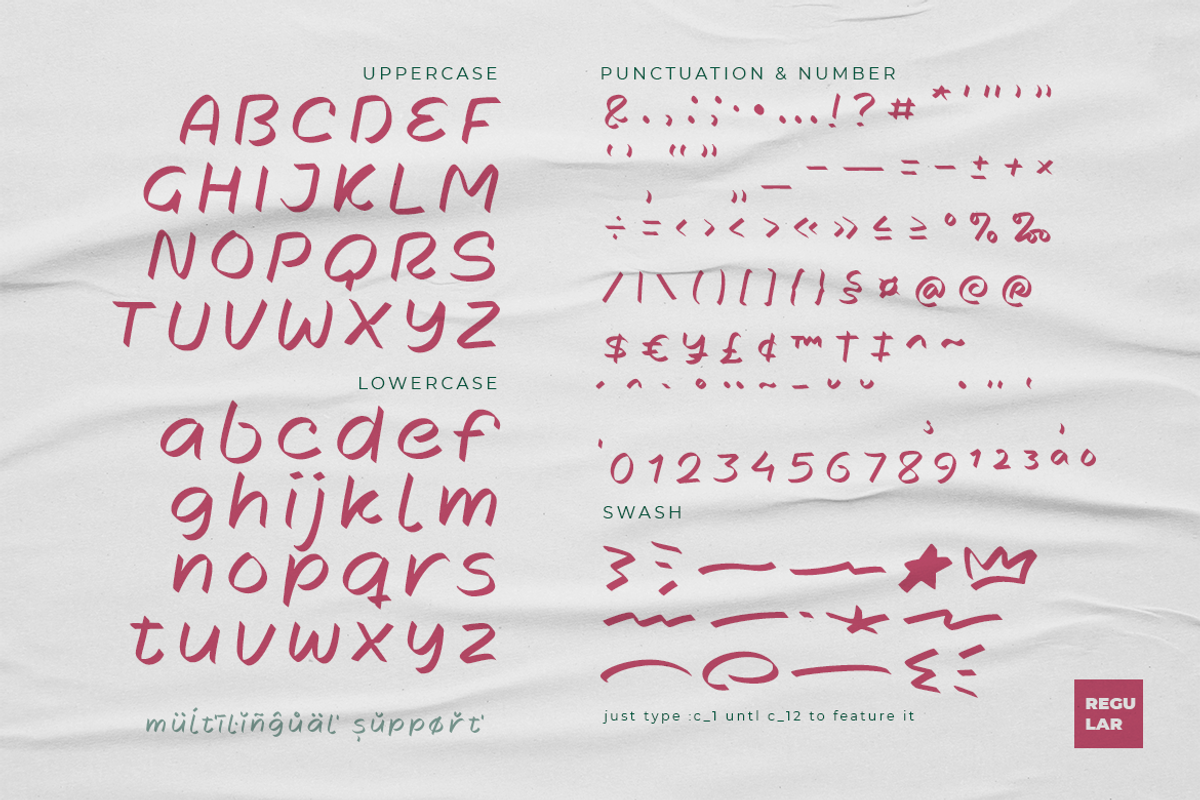 UPPERCASE
ABCDEF
GHIJKLM
NOPQRS
TUVWXYZ
LOWERCASE
abcdef
ghijklm
nopqrs
tuvwxyz
müĺtīŀíñĝůäľ şŭppøřť
PUNCTUATION & NUMBER
& . , : ; · • … ! ? # * ' " ' "
‘ ’ “ ” – — = − ± + ×
‚ „ _
÷ = ‹ › < > « » ≤ ≥ ° % ‰
/ | \ ( ) [ ] { } § ¤ @ © ®
$ € ¥ £ ¢ ™ † ‡ ^ ~
0 1 2 3 4 5 6 7 8 9 1 2 3 a o
SWASH
just type :c_1 untl c_12 to feature it
REGU
LAR